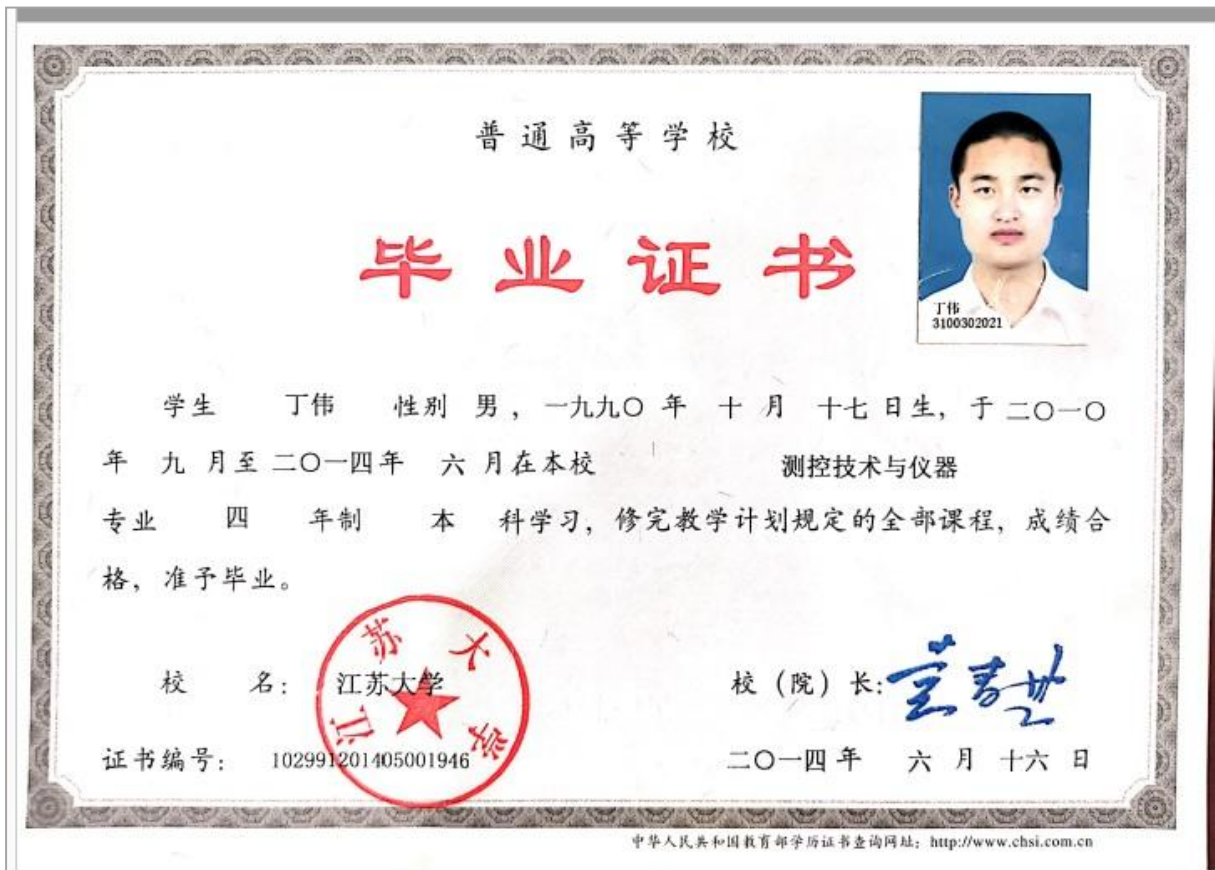 普通高等学校
毕业证书
丁伟
3100302021
学生 丁伟 性别 男，一九九〇 年 十 月 十七 日生，于 二〇一〇
年 九 月至 二〇一四年 六 月在本校 测控技术与仪器
专业 四 年制 本 科学习，修完教学计划规定的全部课程，成绩合
格，准予毕业。
校 名： 江苏大学
江苏大学
校（院）长：
证书编号： 102991201405001946
二〇一四年 六 月 十六 日
中华人民共和国教育部学历证书查询网址：http://www.chsi.com.cn